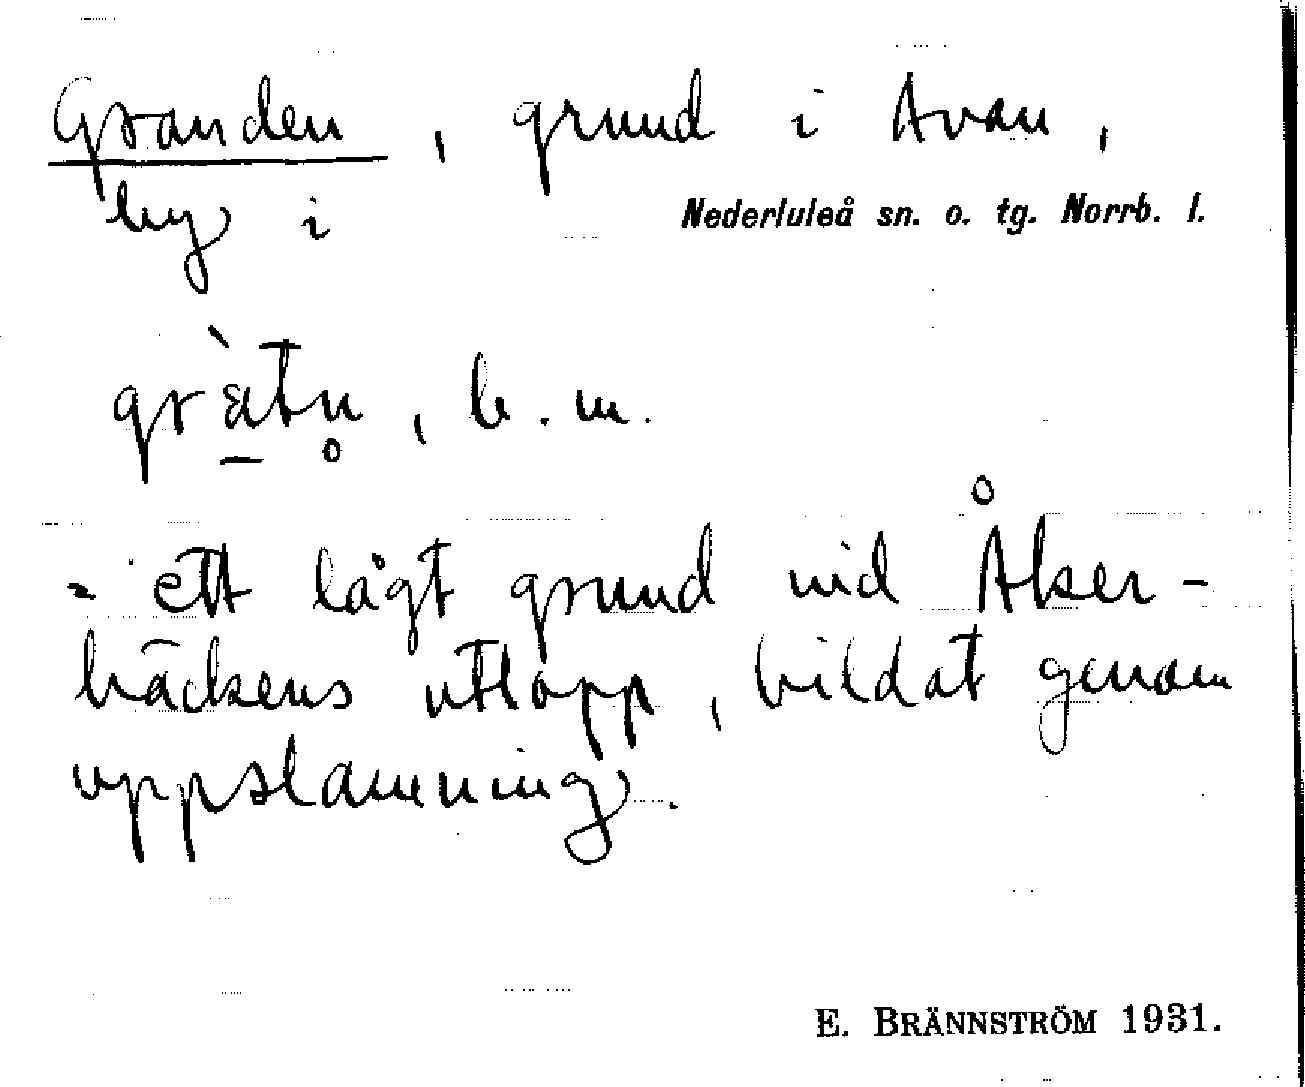 Granden, grund i Avan,
by i Nederluleå sn. o. tg. Norrb. l.
gràtn̥, b. m.
= ett lågt grund vid Åker-
bäckens utlopp, bildat genom
uppslamning.
E. BRÄNNSTRÖM 1931.